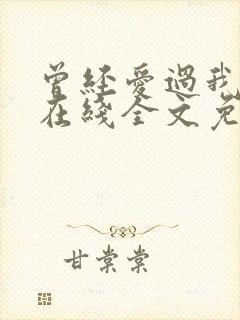 曾經愛過我
在綫全文免
甘棠棠